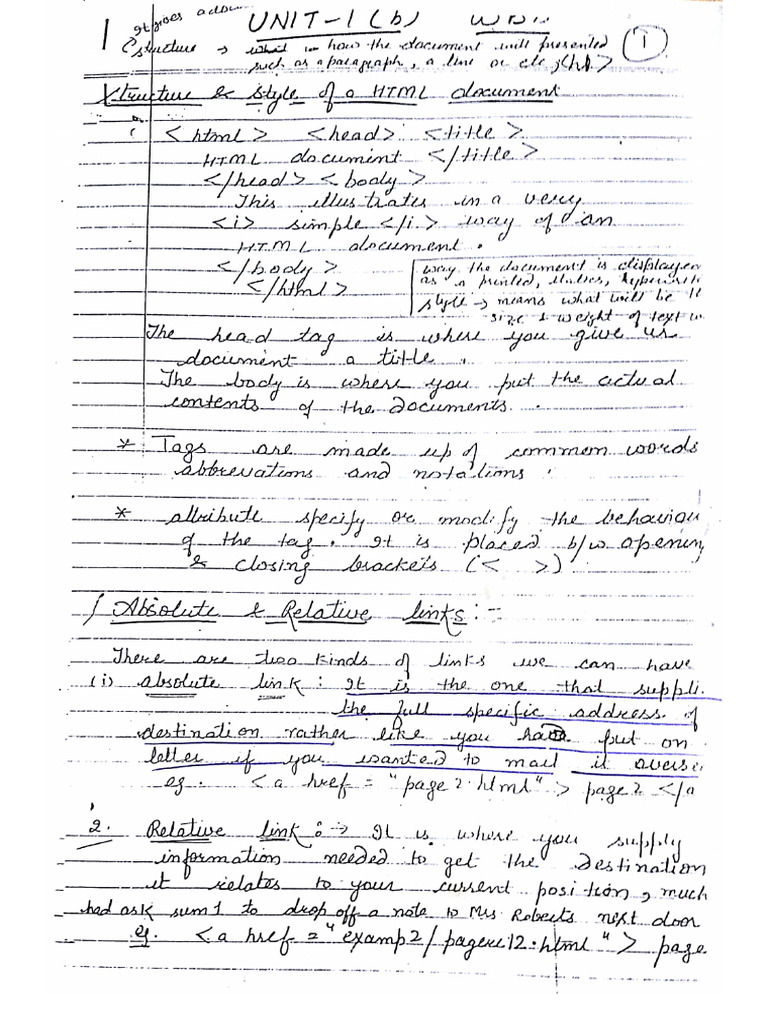 It gives a docu
UNIT-1 (b)
1
Structure → what is how the document will presented
such as a paragraph, a line or etc,
Structure & style of a HTML document
<html> <head> <title>
HTML document </title>
</head> <body>
This illustrates in a very
<i> simple </i> way of an
HTML document.
</body>
</html>
way the document is displayen
as a printed, italics,
style → means what will be
size & weight of text
The head tag is where you give us
document a title.
The body is where you put the actual
contents of the documents.
* Tags are made up of common words
abbrevations and notations.
* attribute specify or modify the behaviou
of the tag. It is placed b/w opening
& closing brackets (< >)
Absolute & Relative links:-
There are two kinds of links we can have
(i) absolute link: It is the one that suppli
the full specific address of
destination rather like you had put on
letter if you wanted to mail it overse
eg. <a href = "page 2.html"> page 2 </a
2. Relative link:→ It is where you supply
information needed to get the destination
it relates to your current position, much
had ask sum1 to drop off a note to Mrs Roberts next door
eg. <a href = "examp2/ "> page